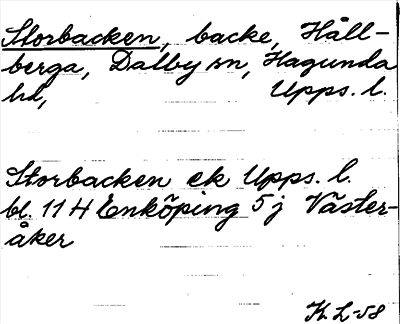 Storbacken, backe, Håll-
berga, Dalby sn, Hagunda
hd, Upps. l.
Storbacken ek Upps. l.
bl. 11 H Enköping 5 j Väster-
åker
K. L-58